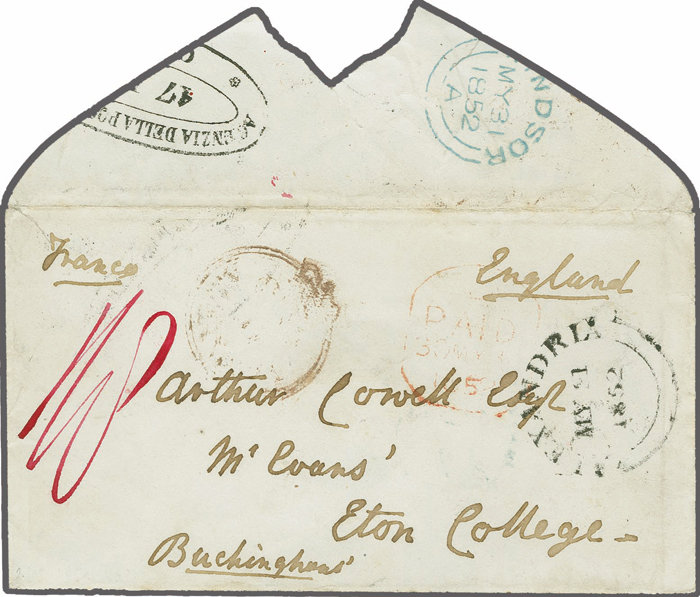 AGENZIA DELLA PO
47
NDSOR
MY 31
1852
A
Franco
England
PAID
30 MY
5
ALEXANDRI
MY 21
1852
Arthur Cowell Esqr
Mr Evans'
Eton College -
Buckinghams'